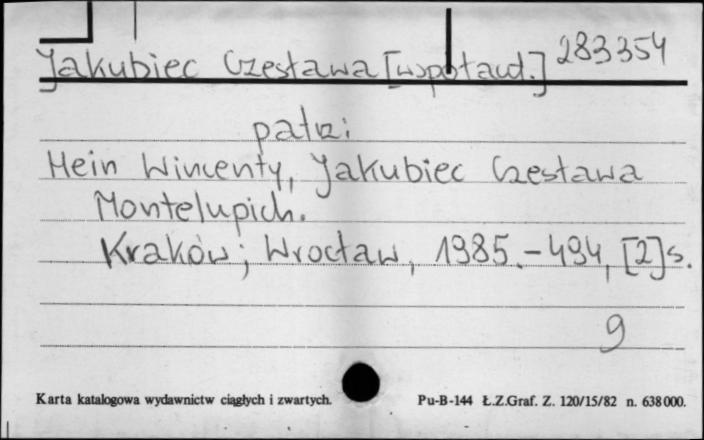 Jakubiec Czesława [współaut.] 283354
patrz:
Hein Wincenty, Jakubiec Czesława
Montelupich.
Kraków; Wrocław, 1985.-494, [2]s.
9
Karta katalogowa wydawnictw ciągłych i zwartych. Pu-B-144 Ł.Z.Graf. Z. 120/15/82 n. 638 000.